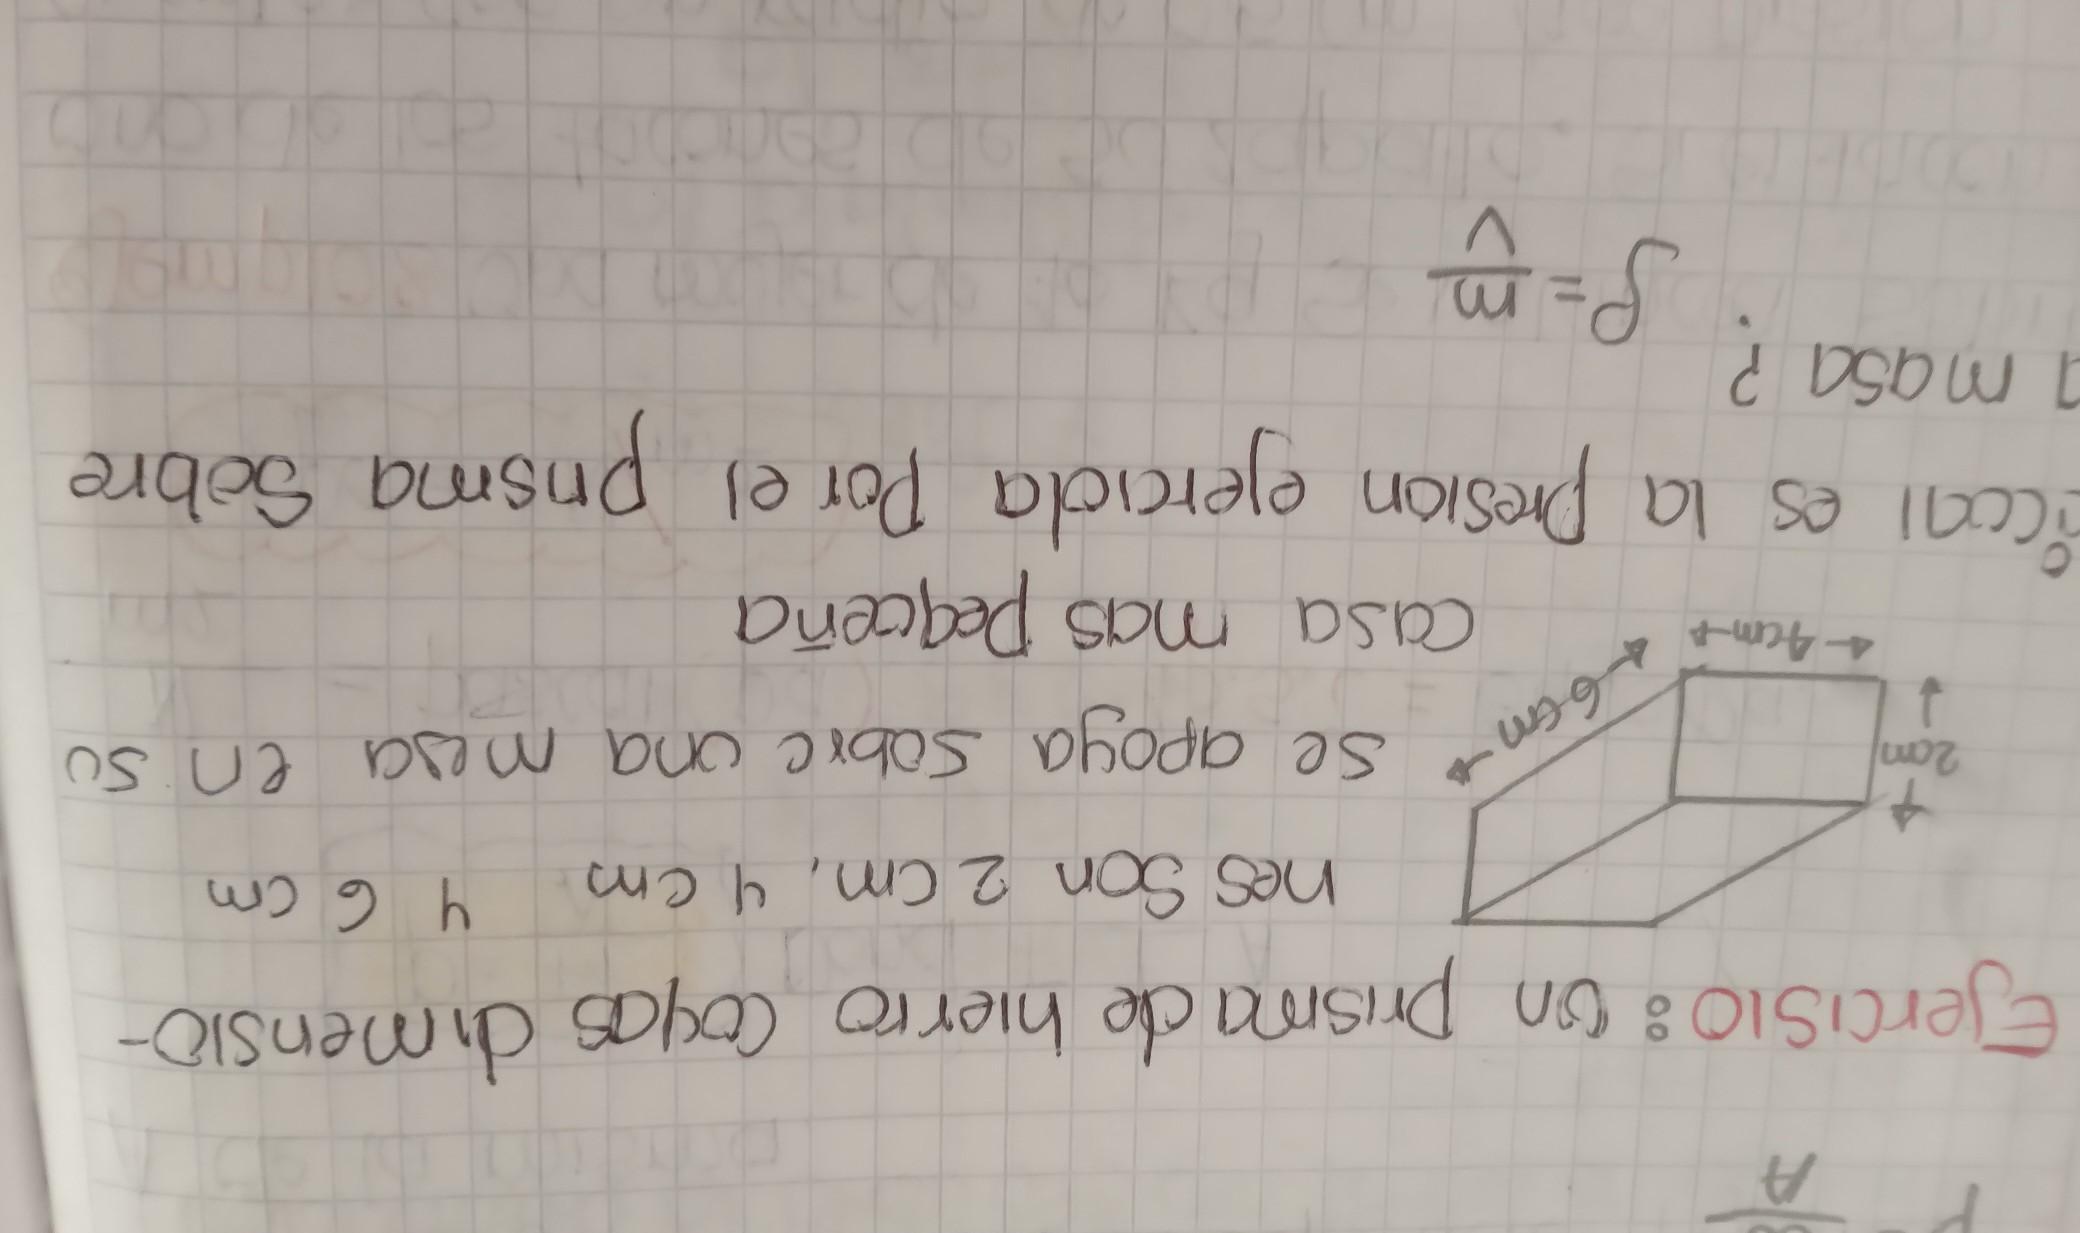 A
Ejercisio: un prisma de hierro cuyas dimensio-
nes son 2 cm, 4 cm y 6 cm
se apoya sobre una mesa en su
casa mas pequeña
2cm
6 cm
4cm
¿cual es la presion ejercida por el prisma sobre
a masa?. ρ = m
V